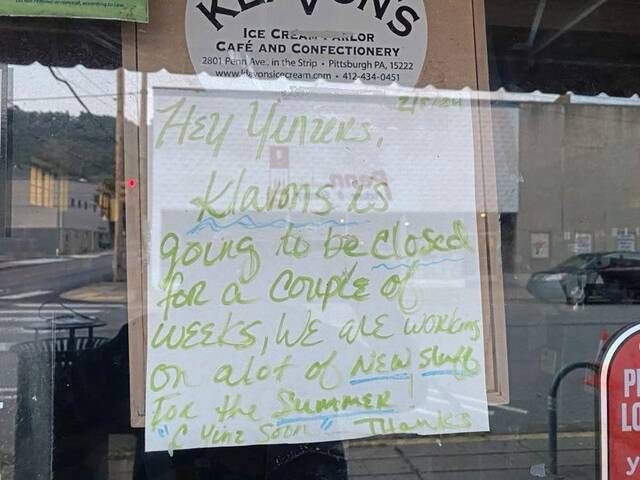 KLAVON'S
ICE CREAM PARLOR
CAFÉ AND CONFECTIONERY
2801 Penn Ave., in the Strip • Pittsburgh PA, 15222
www.klavonsicecream.com • 412-434-0451
Hey Yinzers,
Klavons is
going to be closed
for a couple of
weeks, we are working
on alot of New stuff
for the Summer!
"C Yinz Soon" Thanks